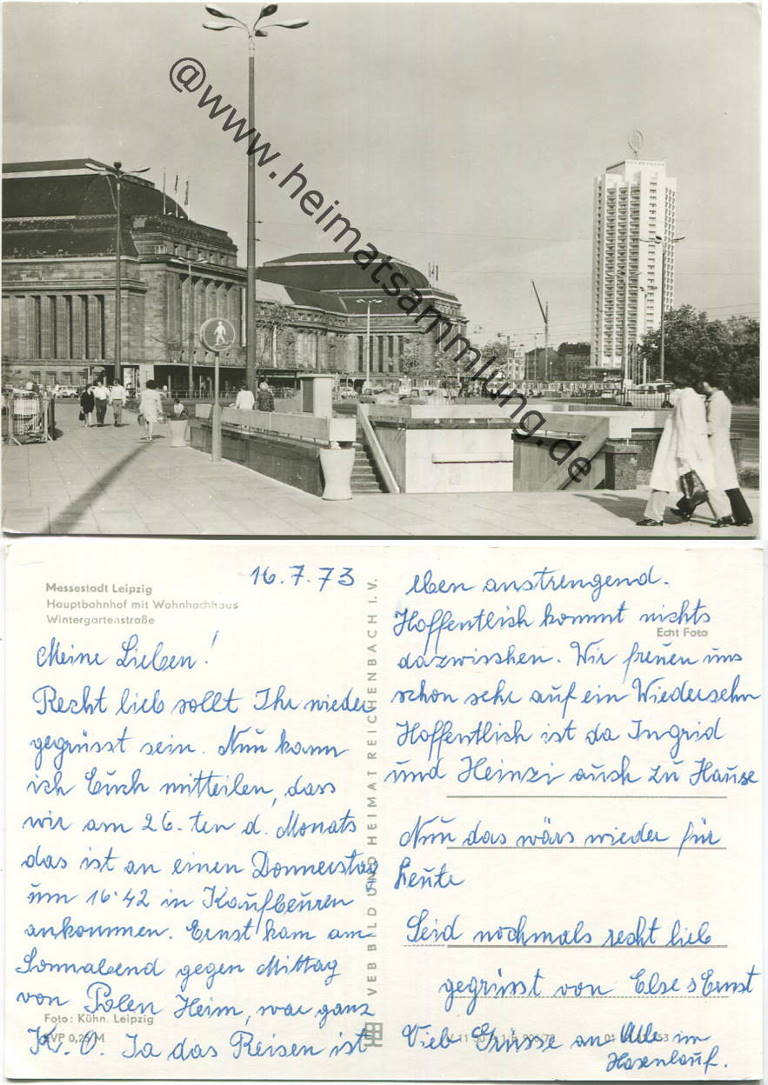 @www.heimatsammlung.de
Messestadt Leipzig
Hauptbahnhof mit Wohnhochhaus
Wintergartenstraße
16.7.73
Meine Lieben!
Recht lieb sollt Ihr wieder
gegrüsst sein. Nun kann
ich Euch mitteilen, dass
wir am 26.ten d. Monats
das ist an einen Donnerstag
um 16.42 in Kaufbeuren
ankommen. Ernst kam am
Sonnabend gegen Mittag
von Polen Heim, war ganz
K.O. Ja das Reisen ist
Foto: Kühn, Leipzig
EVP 0,25 M
VEB BILD UND HEIMAT REICHENBACH I. V.
eben anstrengend.
Hoffentlich kommt nichts
Echt Foto
dazwischen. Wir freuen uns
schon sehr auf ein Wiedersehn
Hoffentlich ist da Ingrid
und Heinzi auch zu Hause
Nun das wärs wieder für
heute
Seid nochmals recht lieb
gegrüsst von Else & Ernst
Viele Grüsse an Alle im
Hasenlauf.